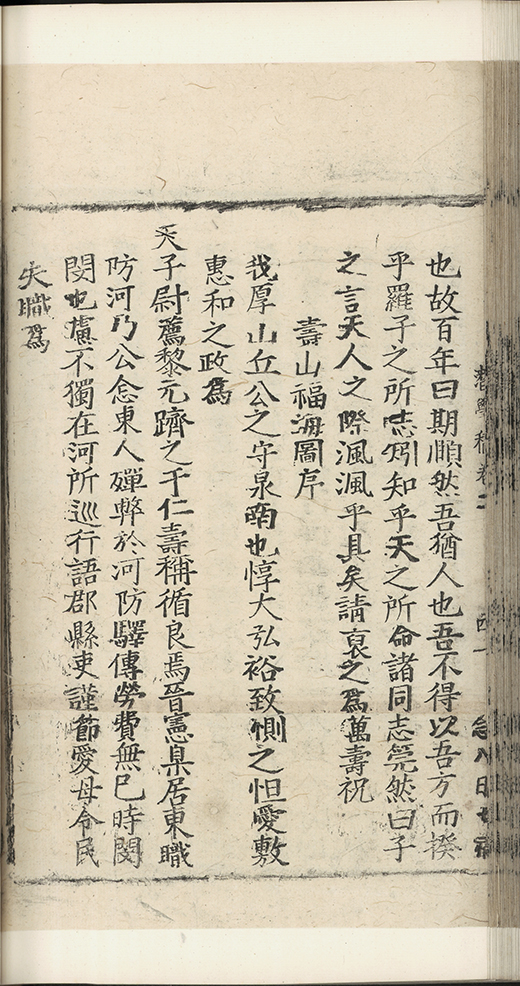 也故百年曰期頤然吾猶人也吾不得以吾方而揆
乎羅子之所志矧知乎天之所命諸同志筦然曰子
之言天人之際渢渢乎具矣請裒之為萬壽祝
壽山福海圖序
我厚山丘公之守泉郡也惇大弘裕致惻之怛愛敷
惠和之政為
天子尉薦黎元躋之于仁壽稱循良焉晉憲臬居東職
防河乃公念東人殫弊於河防驛傳勞費無已時閔
閔也慮不獨在河所巡行語郡縣吏謹節愛毋令民
失職為